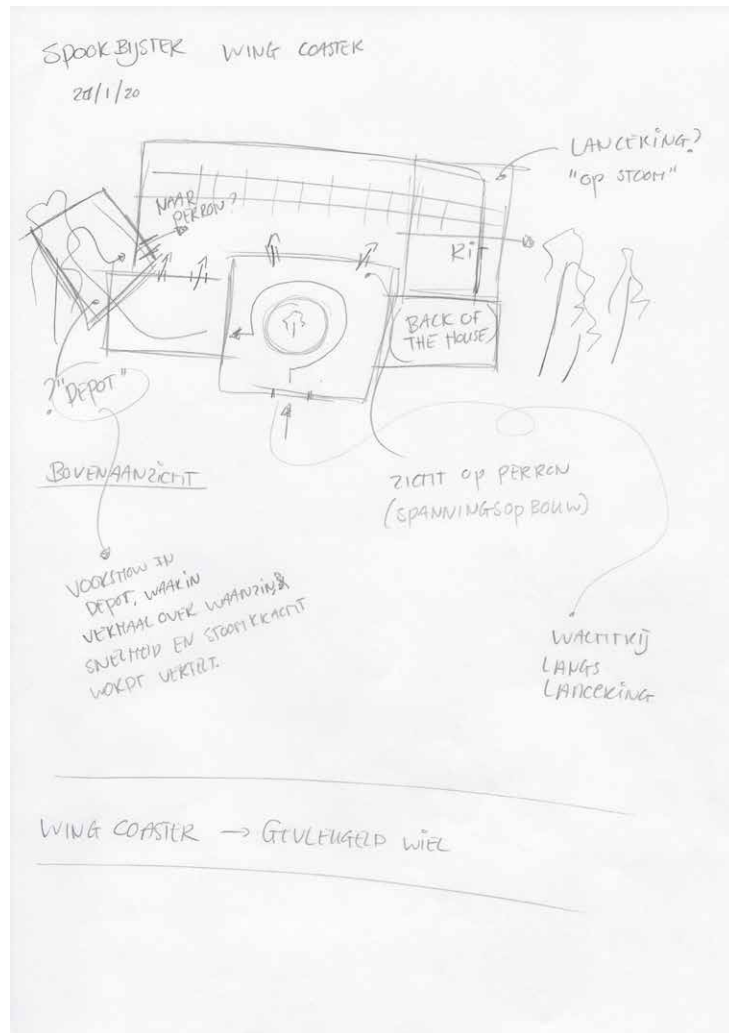 SPOOKBIJSTER WING COASTER
20/1/20
LANCERING?
"OP STOOM"
NAAR
PERRON?
RIT
BACK OF
THE HOUSE
? "DEPOT"
BOVENAANZICHT
ZICHT OP PERRON
(SPANNINGSOPBOUW)
VOORSHOW IN
DEPOT, WAARIN
VERHAAL OVER WAANZIN &
SNELHEID EN STOOMKRACHT
WORDT VERTELT.
WACHTRIJ
LANGS
LANCERING
WING COASTER → GEVLEUGELD WIEL